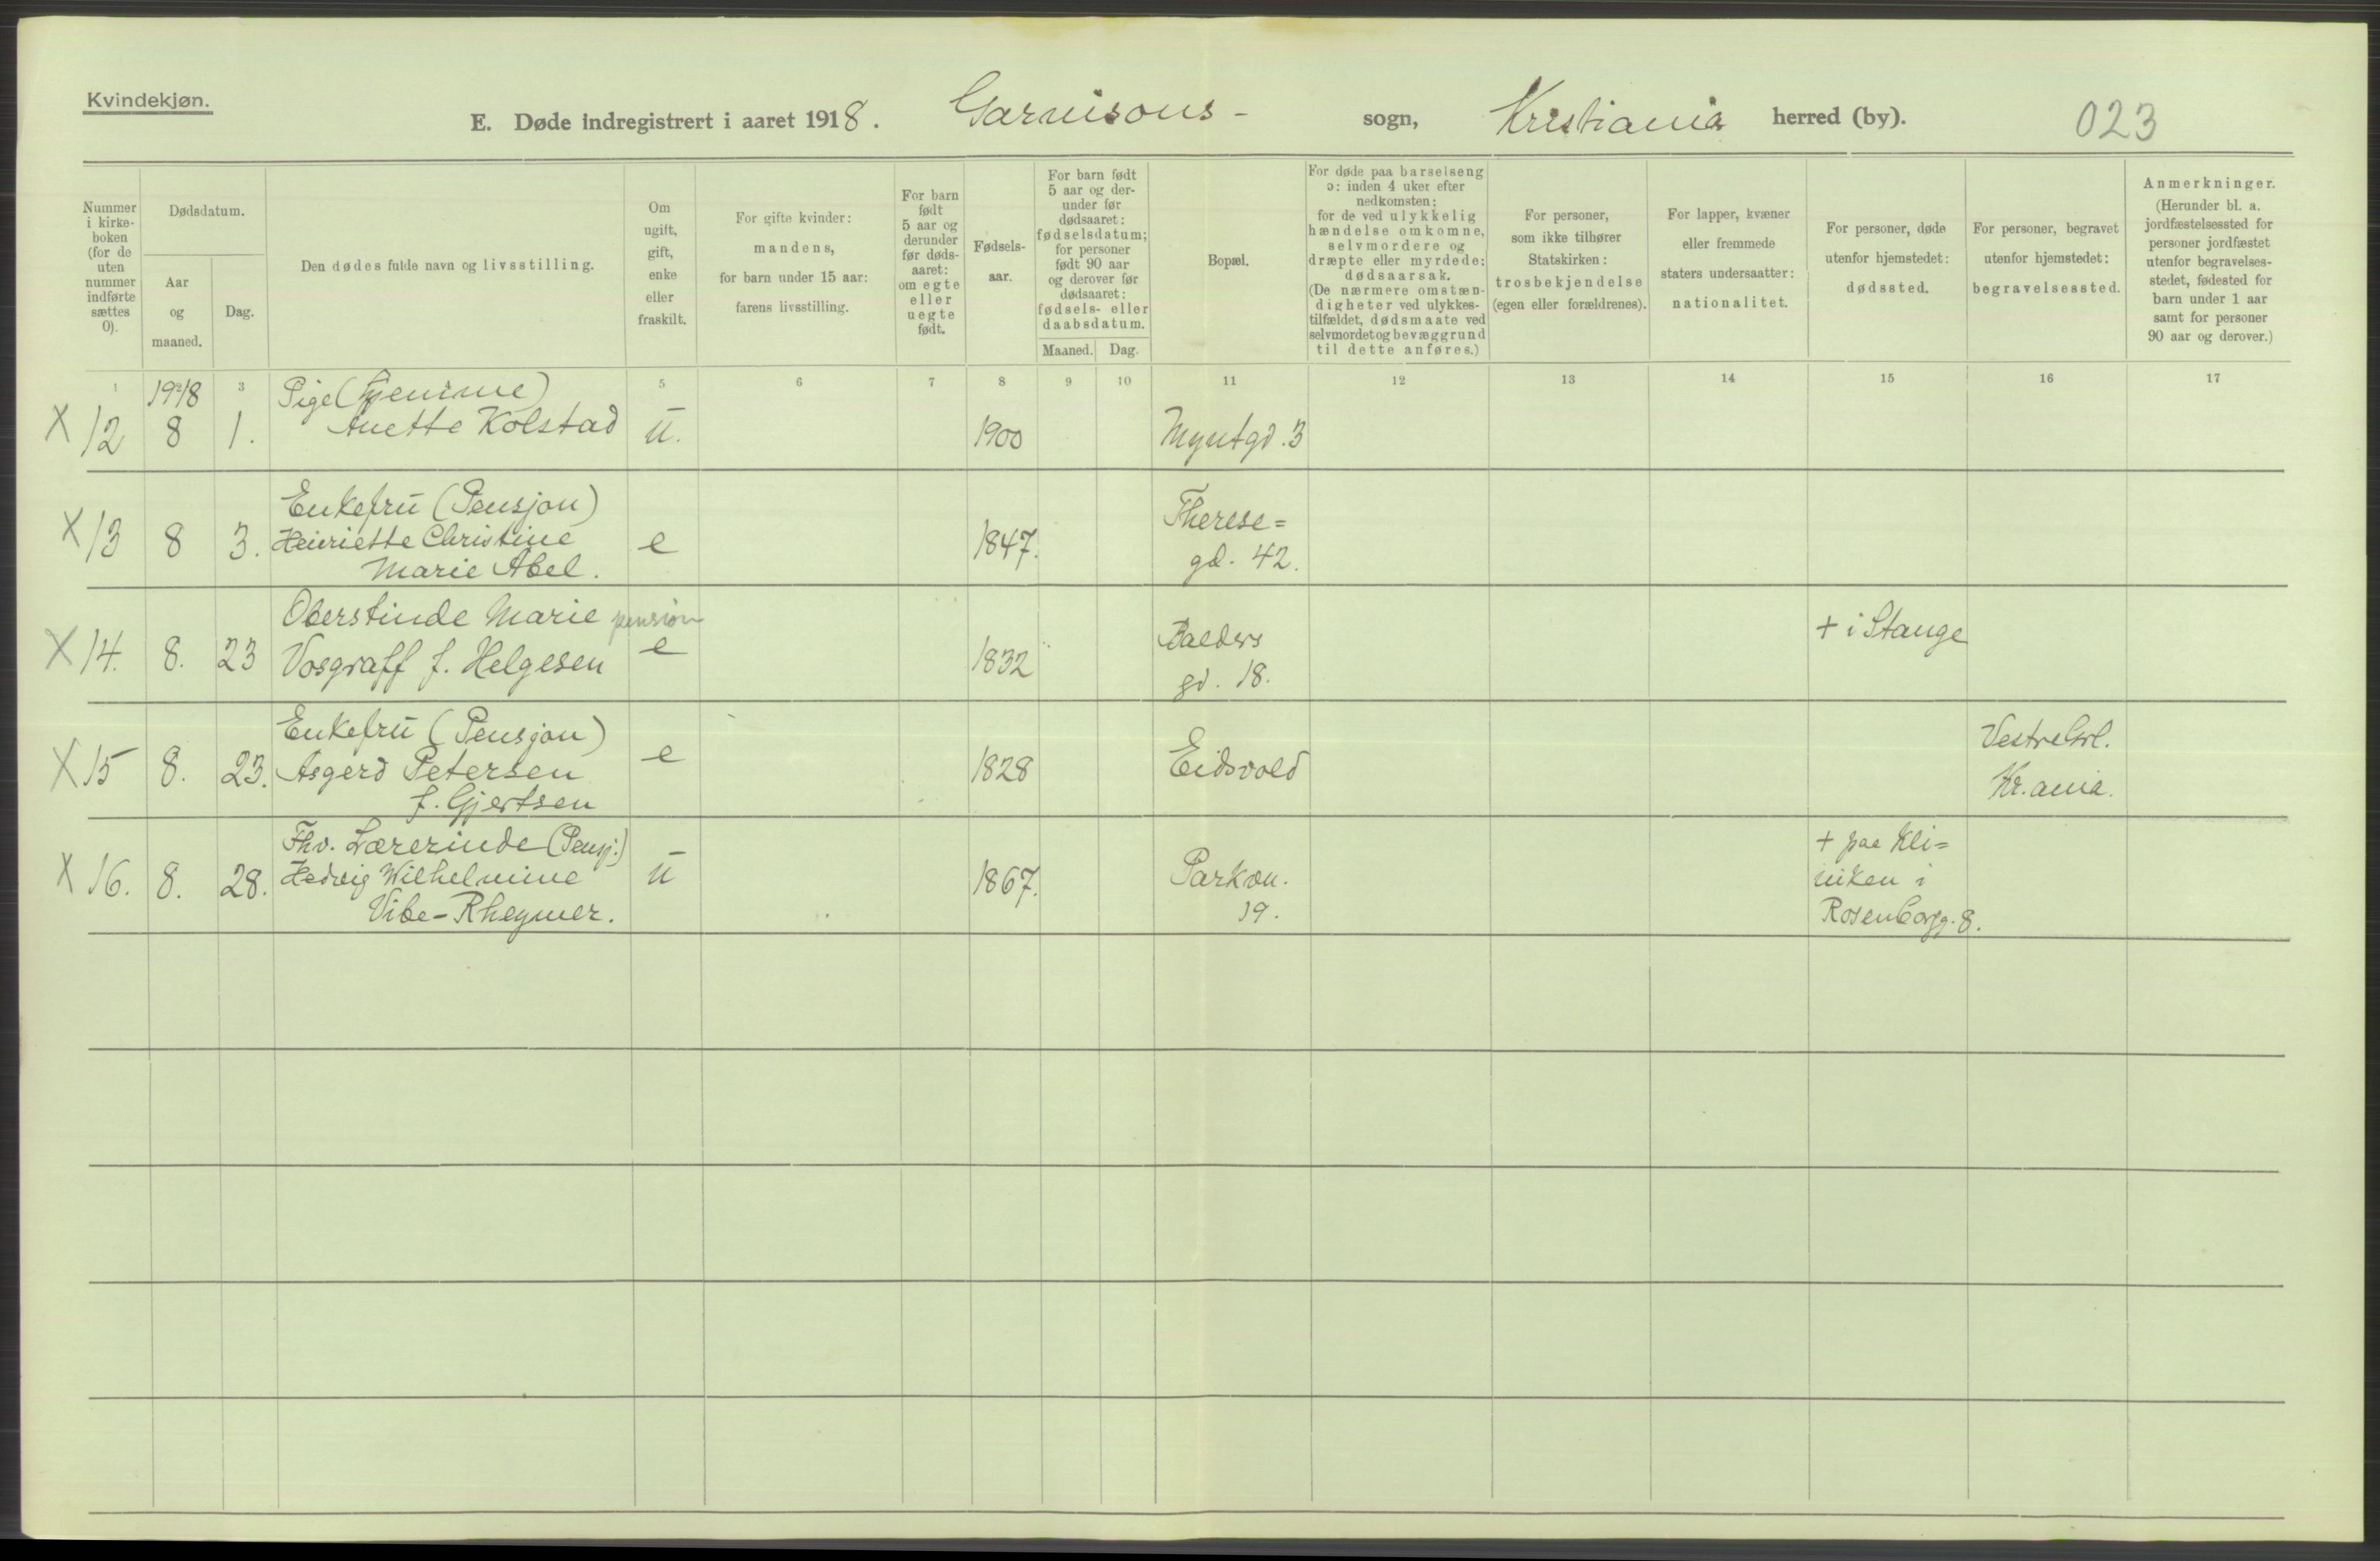 Kvindekjøn.
E. Døde indregistrert i aaret 1918. Garnisons- sogn, Kristiania herred (by). 023
Nummer
i kirke-
boken
(for de
uten
nummer
indførte
sættes
0).
Dødsdatum.
Aar
og
maaned.
Dag.
Den dødes fulde navn og livsstilling.
Om
ugift,
gift,
enke
eller
fraskilt.
For gifte kvinder:
mandens,
for barn under 15 aar:
farens livsstilling.
For barn
født
5 aar og
derunder
før døds-
aaret:
om egte
eller
uegte
født.
Fødsels-
aar.
For barn født
5 aar og der-
under før
dødsaaret:
fødselsdatum;
for personer
født 90 aar
og derover før
dødsaaret:
fødsels- eller
daabsdatum.
Maaned. Dag.
Bopæl.
For døde paa barselseng
ɔ: inden 4 uker efter
nedkomsten;
for de ved ulykkelig
hændelse omkomne,
selvmordere og
dræpte eller myrdede:
dødsaarsak.
(De nærmere omstæn-
digheter ved ulykkes-
tilfældet, dødsmaate ved
selvmordet og bevæggrund
til dette anføres.)
For personer,
som ikke tilhører
Statskirken:
trosbekjendelse
(egen eller forældrenes).
For lapper, kvæner
eller fremmede
staters undersaatter:
nationalitet.
For personer, døde
utenfor hjemstedet:
dødssted.
For personer, begravet
utenfor hjemstedet:
begravelsessted.
Anmerkninger.
(Herunder bl. a.
jordfæstelsessted for
personer jordfæstet
utenfor begravelses-
stedet, fødested for
barn under 1 aar
samt for personer
90 aar og derover.)
1 2 3 5 6 7 8 9 10 11 12 13 14 15 16 17
1918
Pige (hjemme)
X 12 8 1. Anette Kolstad u. 1900 Myntgd. 3
Enkefru (Pensjon)
X 13 8 3. Henriette Christine e 1847. Therese=
Marie Abel. gd. 42.
Oberstinde Marie pension
X 14. 8. 23 Vosgraff f. Helgesen e 1832 Balders
gd. 18.
+ i Stange
Enkefru (Pensjon)
X 15 8. 23. Asgerd Petersen e 1828 Eidsvold
f. Gjertsen
Vestre Grl.
Kr.ania.
Fhv. Lærerinde (Pensj.)
X 16. 8. 28. Hedvig Wilhelmine u 1867. Parkvn.
Vibe-Rheymer. 19.
+ paa Kli=
niken i
Rosenborgg. 8.